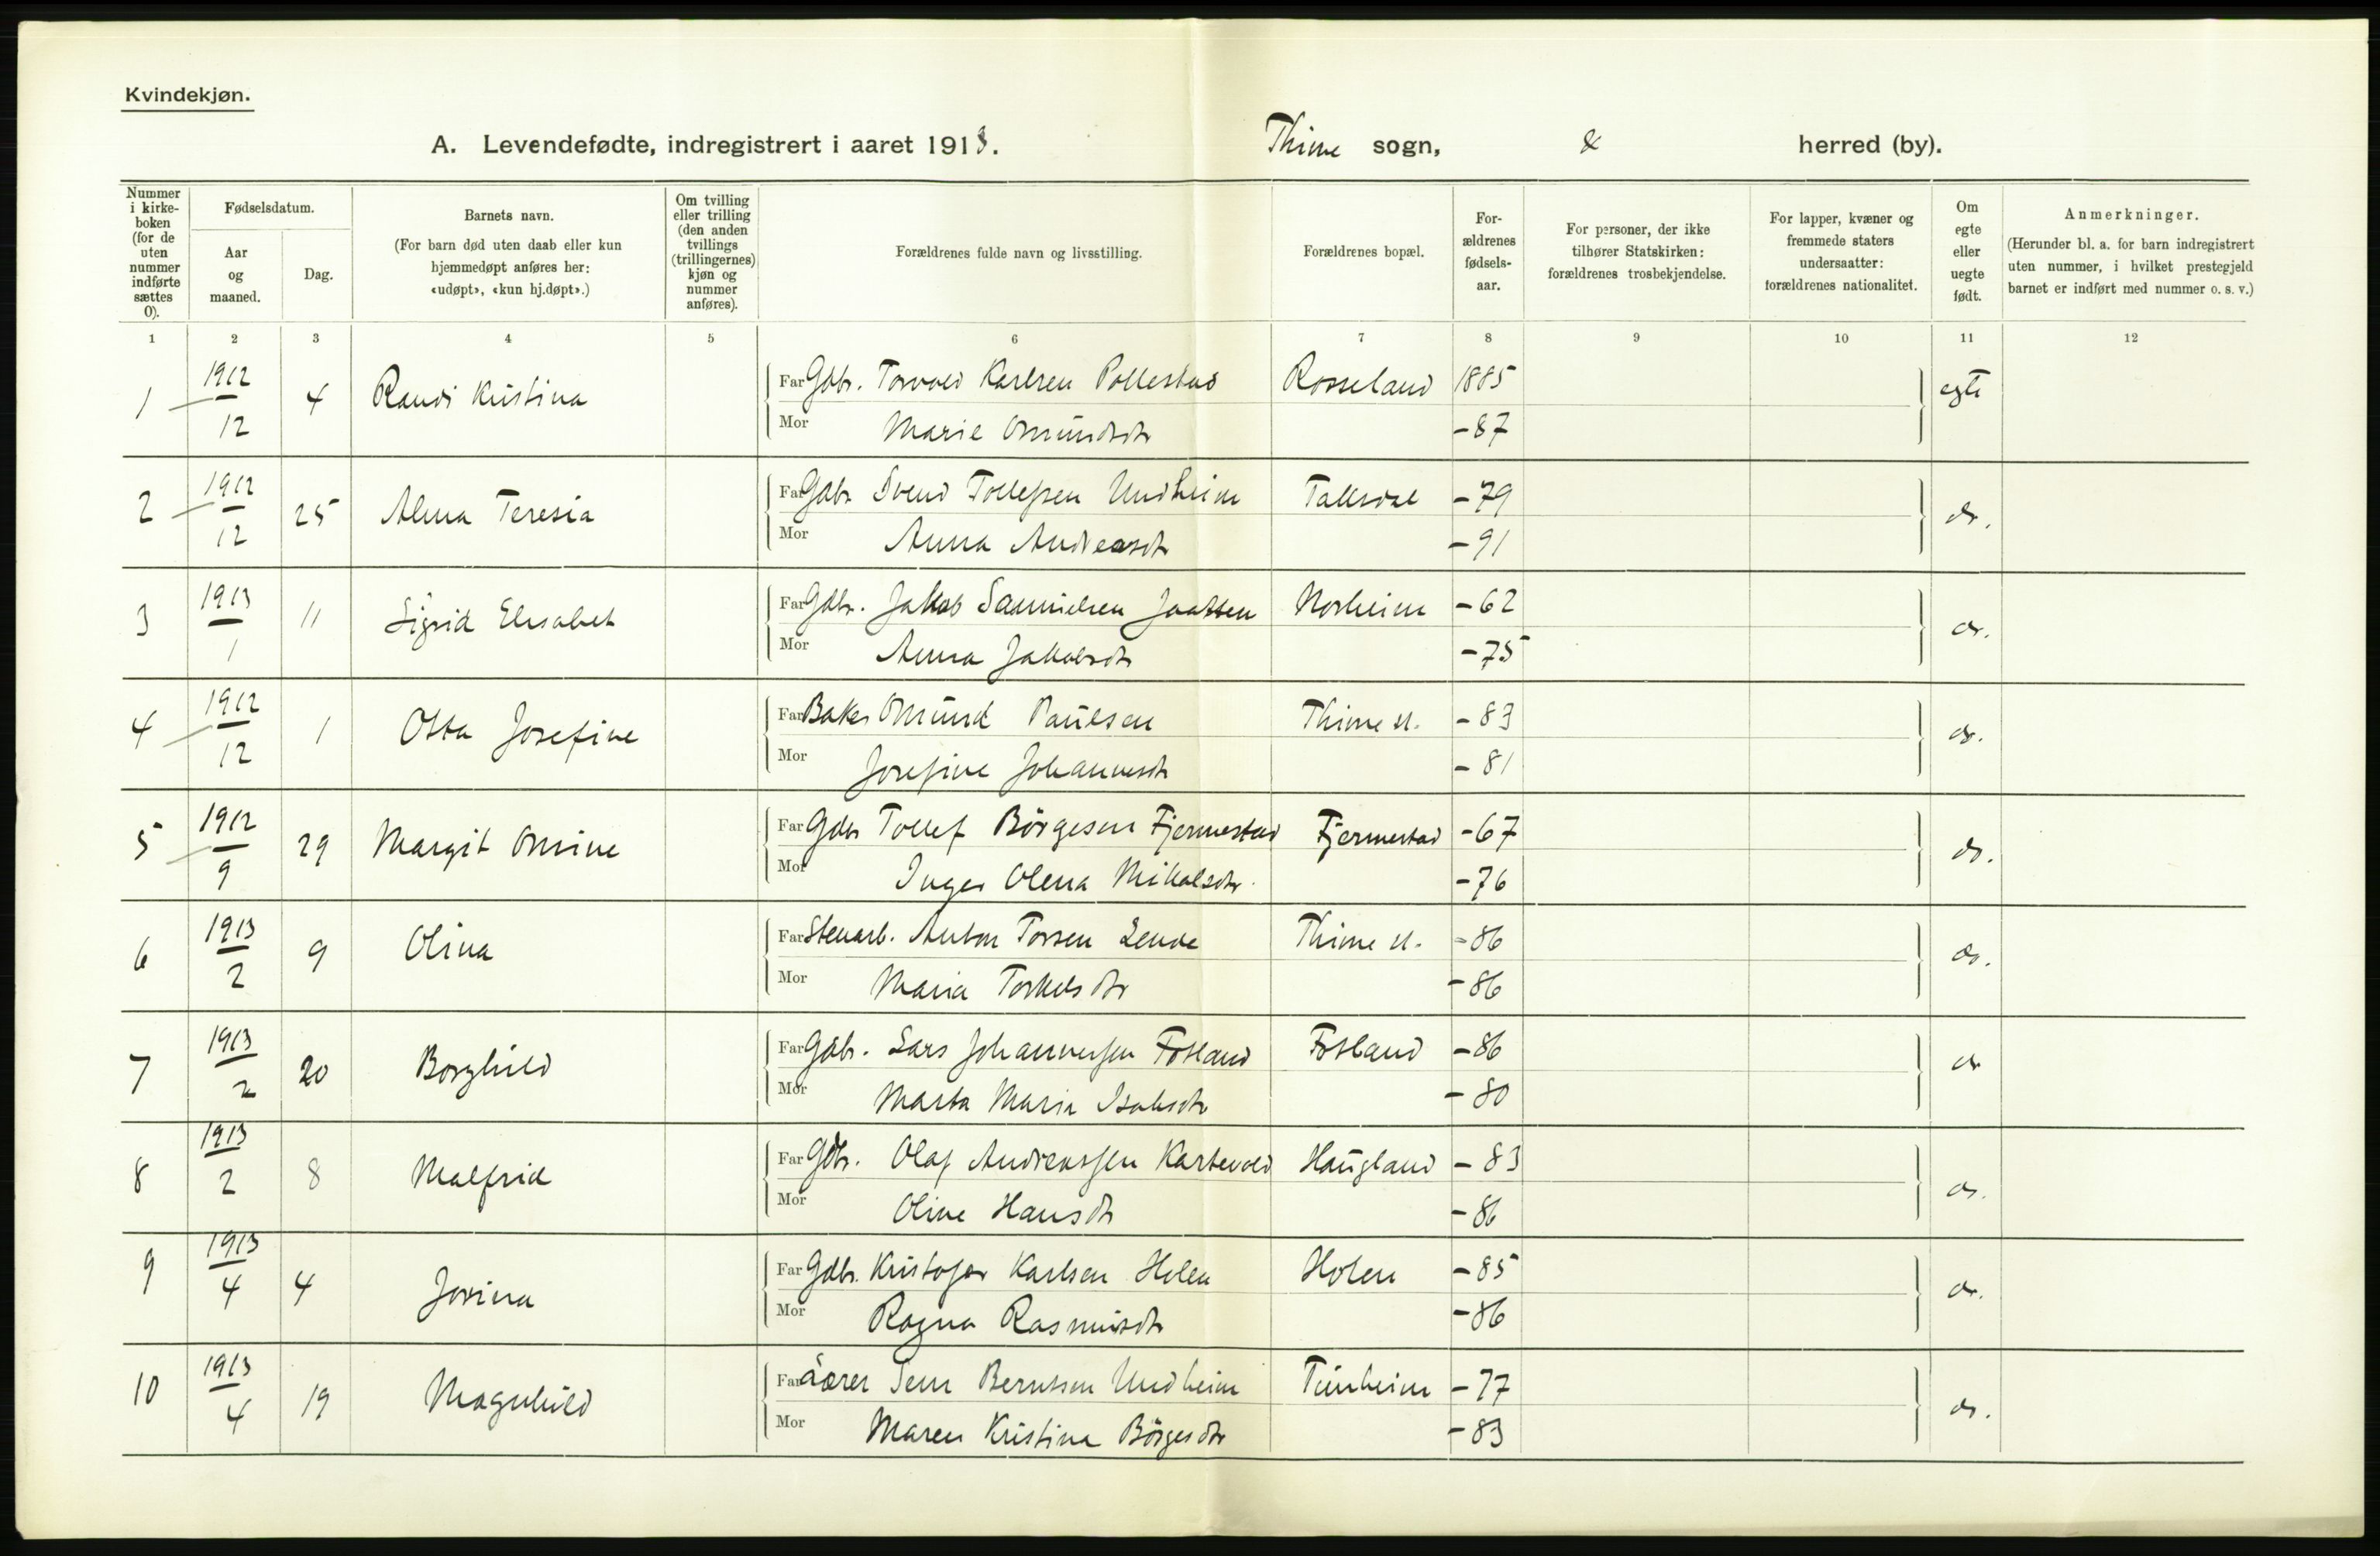 Kvindekjøn.
A. Levendefødte, indregistrert i aaret 1913. Thime sogn, & herred (by).
Nummer i kirke-boken (for de uten nummer indførte sættes 0).
Fødselsdatum.
Aar og maaned.
Dag.
Barnets navn.
(For barn død uten daab eller kun hjemmedøpt anføres her: «udøpt», «kun hj.døpt».)
Om tvilling eller trilling (den anden tvillings (trillingernes) kjøn og nummer anføres).
Forældrenes fulde navn og livsstilling.
Forældrenes bopæl.
For-ældrenes fødsels-aar.
For personer, der ikke tilhører Statskirken: forældrenes trosbekjendelse.
For lapper, kvæner og fremmede staters undersaatter: forældrenes nationalitet.
Om egte eller uegte født.
Anmerkninger.
(Herunder bl. a. for barn indregistrert uten nummer, i hvilket prestegjeld barnet er indført med nummer o. s. v.)
1 2 3 4 5 6 7 8 9 10 11 12
1 1912 12 4 Randi Kristina Far Gdbr. Torvald Karlsen Pollestad Rosseland 1885 egte
Mor Marie Omundsdtr -87
2 1912 12 25 Alma Teresia Far Gdbr Svend Tollefsen Undheim Taksdal -79 do.
Mor Anna Andreasdtr -91
3 1913 1 11 Sigrid Elisabet Far Gdbr. Jakob Samuelsen Norheim -62 do.
Mor Anna Jakobsdtr -75
4 1912 12 1 Otta Josefine Far Baker Omund Paulsen Thime st. -83 do.
Mor Josefine Johannesdtr -81
5 1912 9 29 Margit Omine Far Gdbr Tollef Börgesen Fjermestad Fjermestad -67 do.
Mor Inger Olena Mikalsdtr. -76
6 1913 2 9 Olina Far Stenarb. Anton Torsen Lende Thime st. -86 do.
Mor Maria Torkelsdtr -86
7 1913 2 20 Borghild Far Gdbr. Lars Johannessen Fotland Fotland -86 do
Mor Marta Maria Isaksdtr -80
8 1913 2 8 Malfrid Far Gdbr. Olaf Andreassen Kartevold Haugland -83 do.
Mor Oline Hansdtr -86
9 1913 4 4 Jorina Far Gdbr. Kristofer Karlsen Holen Holen -85 do.
Mor Ragna Rasmusdtr -86
10 1913 4 19 Magnhild Far Berntsen Undheim Tunheim -77 do.
Mor Maren Kristina Börgesdtr -83